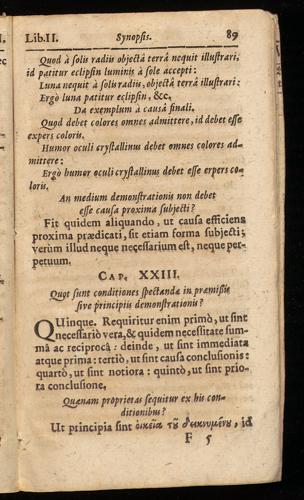 Lib.II. Synopsis. 89
Quod à solis radiis objectâ terrâ nequit illustrari,
id patitur eclipsin luminis à sole accepti:
Luna nequit à solis radiis, objectâ terrâ illustrari:
Ergò luna patitur eclipsin, &c.
Da exemplum à causâ finali.
Quod debet colores omnes admittere, id debet esse
expers coloris.
Humor oculi crystallinus debet omnes colores ad-
mittere:
Ergò humor oculi crystallinus debet esse expers co-
loris.
An medium demonstrationis non debet
esse causa proxima subjecti?
Fit quidem aliquando, ut causa efficiens
proxima prædicati, sit etiam forma subjecti;
verùm illud neque necessarium est, neque per-
petuum.
CAP. XXIII.
Quot sunt conditiones spectandæ in præmissis
sive principiis demonstrationis?
QUinque. Requiritur enim primò, ut sint
necessariò vera, & quidem necessitate sum-
mâ ac reciprocâ: deinde, ut sint immediata
atque prima: tertiò, ut sint causa conclusionis:
quartò, ut sint notiora: quintò, ut sint prio-
ra conclusione.
Quænam proprietas sequitur ex his con-
ditionibus?
Ut principia sint οἰκεῖα τοῦ δεικνυμένου, id
F 5